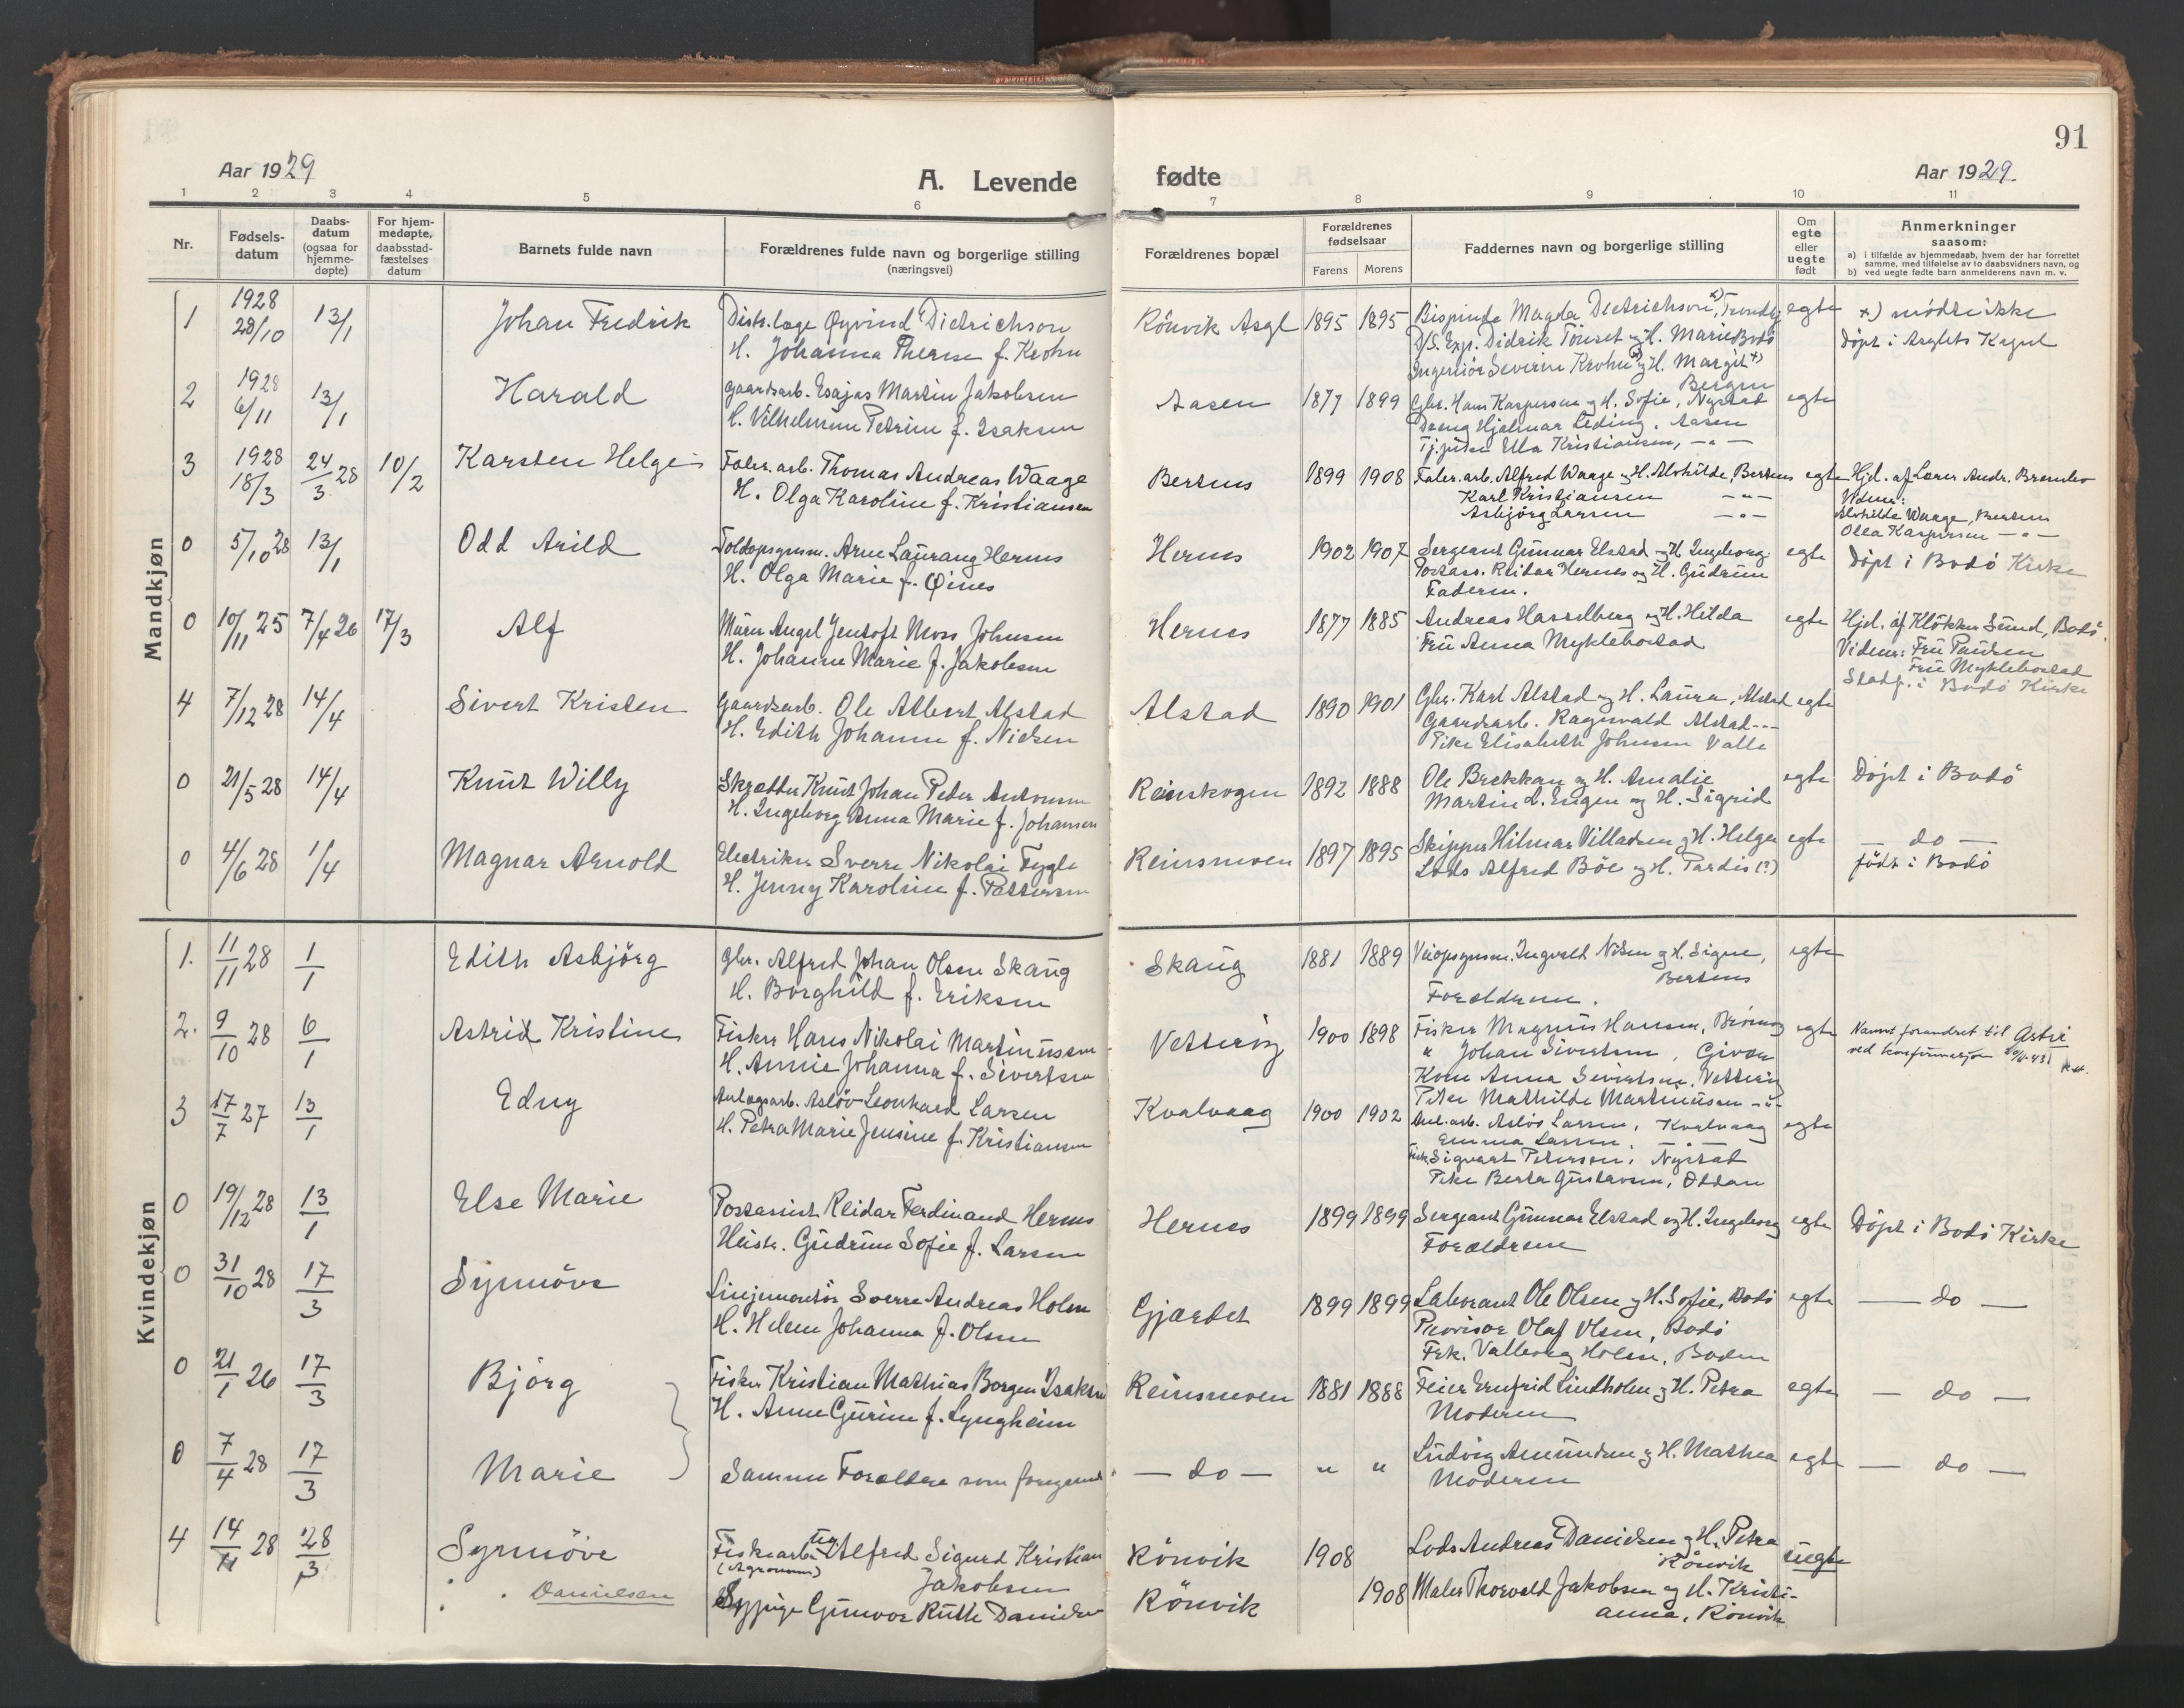 91
Aar 1929
A. Levende fødte
Aar 1929.
1 2 3 4 5 6 7 8 9 10 11
Nr.
Fødsels-
datum
Daabs-
datum
(ogsaa for
hjemme-
døpte)
For hjem-
medøpte,
daabsstad-
fæstelses
datum
Barnets fulde navn
Forældrenes fulde navn og borgerlige stilling
(næringsvei)
Forældrenes bopæl
Forældrenes
fødselsaar
Farens Morens
Faddernes navn og borgerlige stilling
Om
egte
eller
uegte
født
Anmerkninger
saasom:
a) i tilfælde av hjemmedaab, hvem der har forrettet
samme, med tilføielse av to daabsvidners navn, og
b) ved uegte fødte barn anmelderens navn m. v.
Mandkjøn
1 1928 28/10 13/1 Johan Fredrik
Distr.læge Øyvind Dietrichson
H. Johanna Therese f. Krohn
Rönvik Asyl 1895 1895
Bispinde Magda Dietrichson x),
D/S. Exp. Didrik Tönset og H. Marie Bodö
Ingeniör Severin Krohn og H. Margit x)
Bergen
egte
x) mödte ikke
Döpt i Asylets Kapel
2 1928 6/11 13/1 Harald
Gaardsarb. Esajas Martin Jakobsen
H. Vilhelmine Petrine f. Isaksen
Aasen 1877 1899
Gbr. Hans Kaspersen og H. Sofie, Nystad
Dreng Hjalmar Leding, Aasen
Tj.pike Ella Kristiansen, -"-
egte
3 1928 18/3 24/3 28 10/2 Karsten Helge
Fabr.arb. Thomas Andreas Waage
H. Olga Karoline f. Kristiansen
Bertnes 1899 1908
Fabr.arb. Alfred Waage og H. Alvhilde, Bertnes
Karl Kristiansen -"-
Asbjörg Larsen -"-
egte
Hjd. af Lærer Andr. Bremler
Vidner:
Alvhilde Waage, Bertnes
Olea Kaspersen -"-
0 5/10 28 13/1 Odd Arild
Toldopsynsm. Arne Laurang Hernes
H. Olga Marie f. Øines
Hernes 1902 1907
Sergeant Gunnar Elstad og H. Ingeborg
Postass. Reidar Hernes og H. Gudrun
Faderen.
egte
Döpt i Bodö Kirke
0 10/11 25 7/4 26 17/3 Alf
Murer Angel Jentoft Moss Johnsen
H. Johanne Marie f. Jakobsen
Hernes 1877 1885
Andreas Hasselberg og H. Hilda
Fru Anna Myklebostad
egte
Hjd. af Klokker Sund, Bodö.
Vidner: Fru Paulsen
Fru Myklebostad
Stadf. i Bodö Kirke
4 7/12 28 14/4 Sivert Kristen
Gaardsarb. Ole Albert Alstad
H. Edith Johanne f. Nielsen
Alstad 1890 1901
Gbr. Karl Alstad og H. Laura, Alstad
Gaardsarb. Ragnvald Alstad -"-
Pike Elisabeth Johnsen Valle
egte
0 21/5 28 14/4 Knut Willy
Skrædder Knut Johan Peder Antonsen
H. Ingeborg Anna Marie f. Johansen
Reinskogen 1892 1888
Ole Brekkan og H. Amalie
Martin L. Engen og H. Sigrid
egte
Döpt i Bodö
0 4/6 28 1/4 Magnar Arnold
Electriker Sverre Nikolai Fygle
H. Jenny Karoline f. Pettersen
Reinsmoen 1897 1895
Skipper Hilmar Villadsen og H. Helga
Lods Alfred Böe og H. Tardis (?)
egte
- do -
födt i Bodö
Kvindekjøn
1. 11/11 28 1/1 Edith Asbjörg
Gbr. Alfred Johan Olsen Skaug
H. Borghild f. Eriksen
Skaug 1881 1889
Veiopsynsm. Ingvald Nilsen og H. Signe,
Bertnes
Forældrene.
egte
2. 9/10 28 6/1 Astrid Kristine
Fisker Hans Nikolai Martinussen
H. Annie Johanna f. Sivertsen
Vetteröy 1900 1898
Fisker Magnus Hansen,
" Johan Sivertsen, Givær
Kone Anna Sivertsen, Vetteröy
Pike Mathilde Martinussen -"-
egte
Navnet forandret til Astri
ved konfirmasjon
3 17/7 27 13/1 Edny
Anlægsarb. Aslöv Leonhard Larsen
H. Petra Marie Jensine f. Kristiansen
Kvalvaag 1900 1902
Anl.arb. Aslöv Larsen, Kvalvaag
Emma Larsen, -"-
Fisk. Sigvart Petersen, Nystad
Pike Berta Gustavsen, Oddan
egte
0 19/12 28 13/1 Else Marie
Postassist. Reidar Ferdinand Hernes
Hustr. Gudrun Sofie f. Larsen
Hernes 1899 1899
Sergeant Gunnar Elstad og H. Ingeborg
Forældrene
egte
Döpt i Bodö Kirke
0 31/10 28 17/3 Synnöve
Linjemontör Sverre Andreas Holm
H. Helene Johanna f. Olsen
Gjærdet 1899 1899
Laborant Ole Olsen og H. Sofie, Bodö
Provisor Olaf Olsen, Bodö
Frk. Valborg Holm, Bodin
egte
- do -
0 21/1 26 17/3 Björg
Fisker Kristian Mathias Borgen Isaksen
H. Anne Gurine f. Lyngheim
Reinsmoen 1881 1888
Feier Ernfrid Lindholm og H. Petra
Moderen
egte
- do -
0 7/4 28 17/3 Marie
Samme Forældre som foregaaende
- do - " "
Ludvig Amundsen og H. Mathea
Moderen
egte
- do -
4 14/11 28 28/3 Synnöve
Danielsen
Fiskearb. Alfred Sigurd Kristian
(Agronom) Jakobsen
Sypige Gunvor Ruth Danielsen
Rönvik 1908
Rönvik 1908
Lods Andreas Danielsen og H. Petra
Rönvik
Maler Thorvald Jakobsen og H. Kristi-
anna, Rönvik
uegte